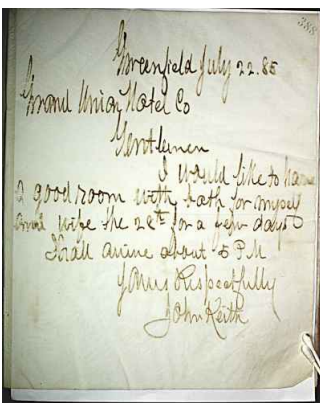 388
Greenfield July 22.85
Grand Union Hotel Co
Gentlemen
I would like to have
a good room with bath for myself
and wife the 28th for a few days
Shall arrive about 5 P M
Yours Respectfully
John Keith